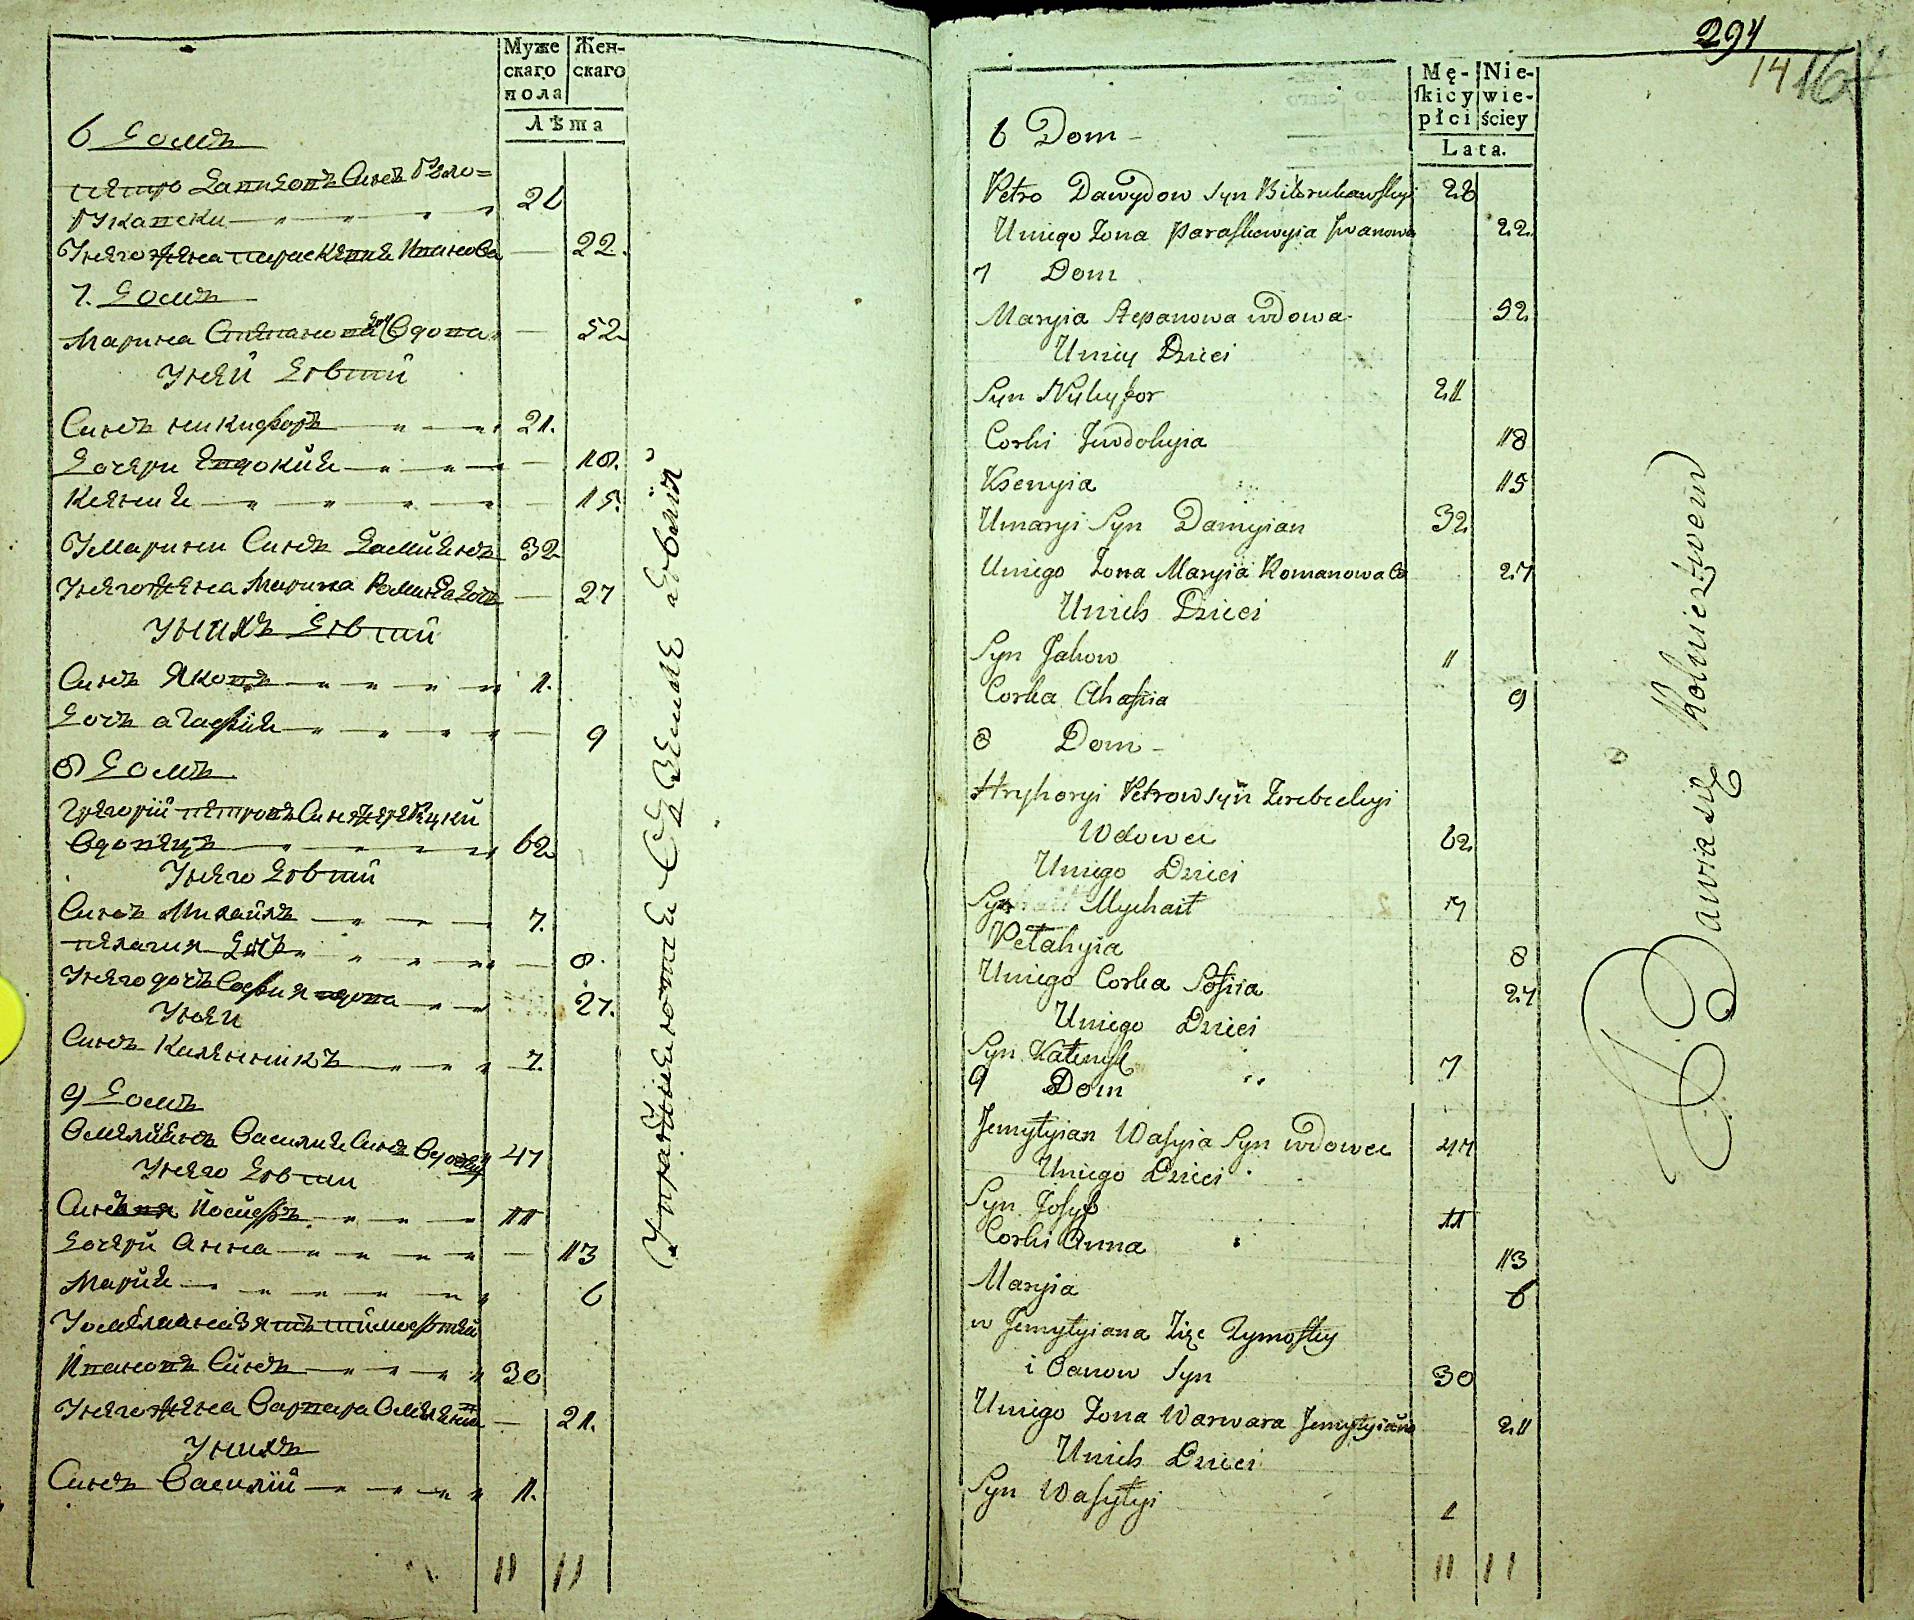 Муже
скаго
пола
Жен-
скаго
Лѣта
6 Домъ
Петро Давидовъ Синъ
22.
Унего жена Параскевия Иванова
7. Домъ
Марина Степанова Вдова
52
Уней Дѣтий
Синъ Никифоръ 21.
Дочери Евдокия 18.
Ксения 15.
Умарини Синъ Дамиянъ 32
Унего жена Марина Романова 27
Унихъ Дѣтий
Синъ Яковъ 11.
Дочь Агафия 9
8 Домъ
Григорий Петровъ Синъ
Вдовецъ 62
Унего Дѣтий
Синъ Михайлъ 7.
Пелагия Дочь 8.
Унего дочь София вдова 27.
Уней
Синъ Калѣнникъ 7.
9 Домъ
Омелиянъ Василия Синъ 47
Унего Дѣтий
Синъ Йосифъ 11
Дочери Анна 13
Мария 6
Уомеляна Зять Тимофтей
Ивановъ Синъ 30
Унего жена Варвара 21.
Унихъ
Синъ Василий 1.
11 11
Упражняются СЪ Земле дѣлия
294
14
Mę-
skicy
płci
Nie-
wie-
ściey
Lata.
6 Dom
Petro Dawydow Syn 28
Uniego Zona Paraskewyia Jwanowa 22
7 Dom
Maryia Stepanowa wdowa 52
Uniey Dzieci
Syn Nykyfor 21
Corki Jewdokyia 18
Ksenyia 15
Umaryi Syn Damyian 32
Uniego Zona Maryia Romanowa 27
Unich Dzieci
Syn Jakow 11
Corka Ahafiia 9
8 Dom
Hryhoryi Petrow syn Zerebeckyi
Wdowec 62
Uniego Dzieci
Syn Mychaił 7
Pełahyia 8
Uniego Corka Sofiia 27
Uniego Dzieci
Syn Kałenyk 7
9 Dom
Jemyłyian Wasyia Syn wdowec 47
Uniego Dzieci
Syn Josyf 11
Corki Anna 13
Maryia 6
w Jemyłyiana Zięc Tymoftey
i Oanow Syn 30
Uniego Zona Warwara Jemyłyiana 21
Unich Dzieci
Syn Wasyłyi 1
11 11
Bawia się Rolnictwem